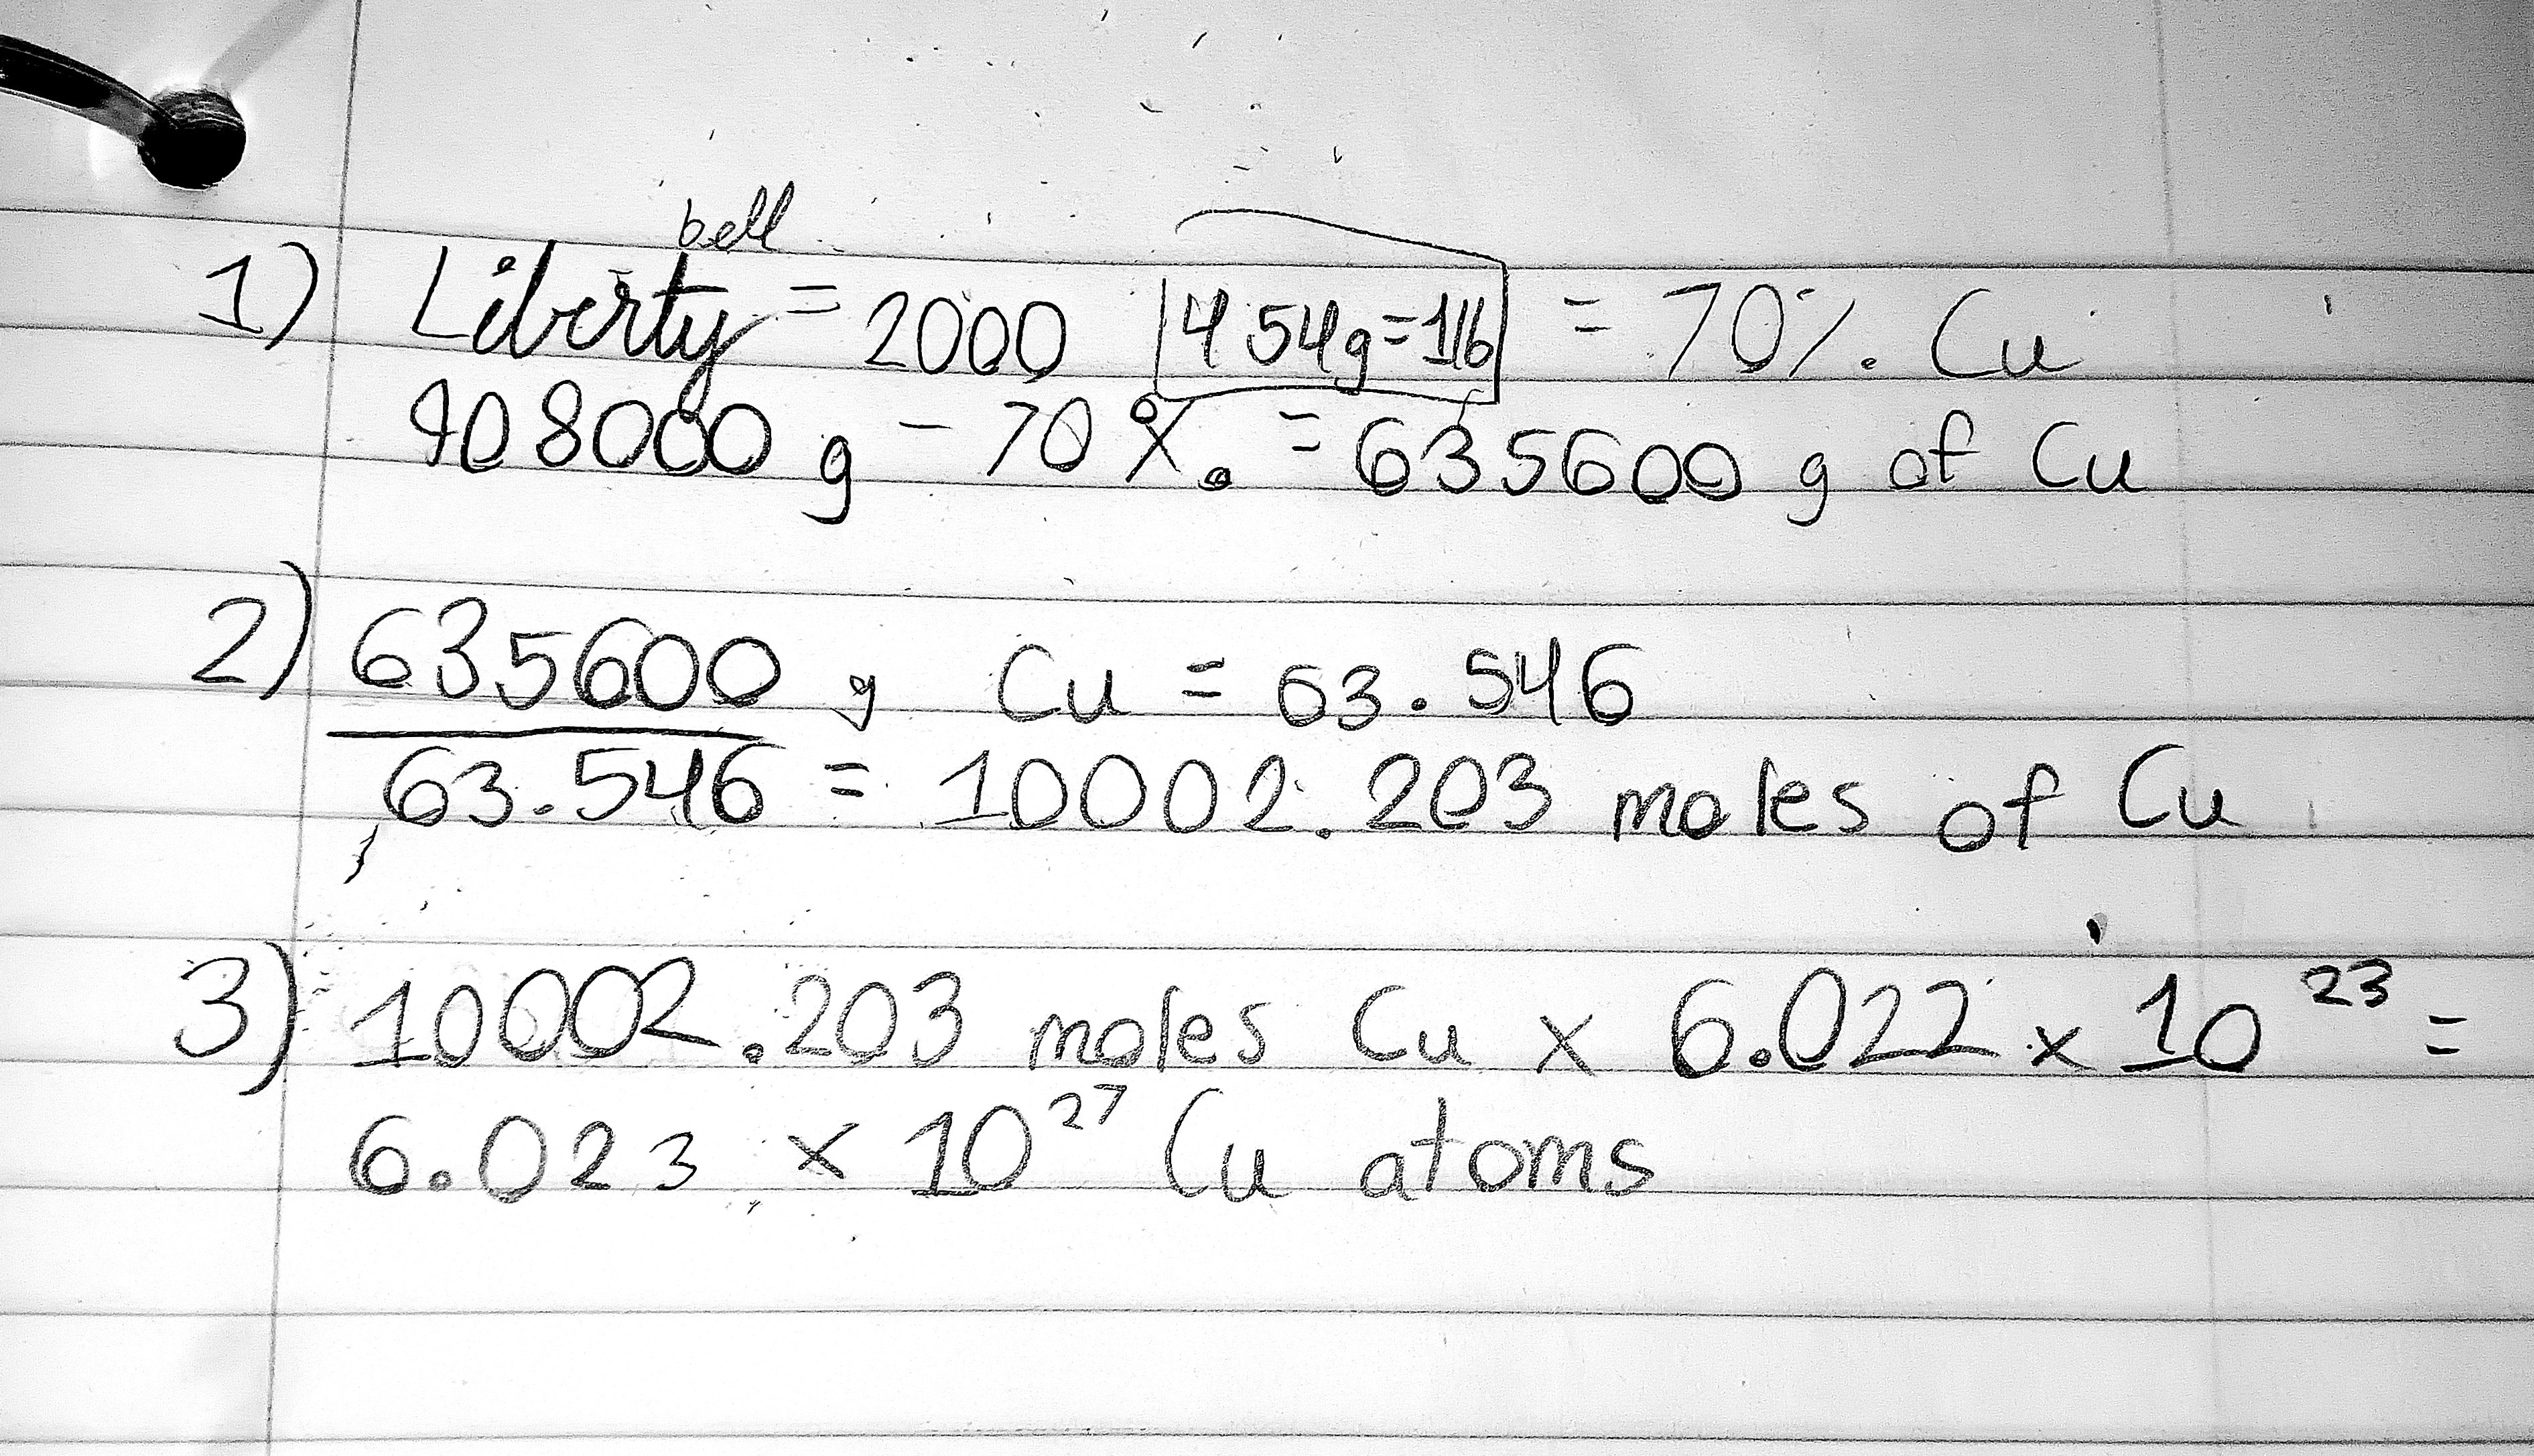 bell
1) Liberty = 2000 454g=1lb = 70%. Cu
908000 g - 70%. = 635600 g of Cu
2) 635600 g Cu = 63.546
63.546 = 10002.203 moles of Cu
3) 10002.203 moles Cu x 6.022 x 10²³ =
6.023 x 10²⁷ Cu atoms